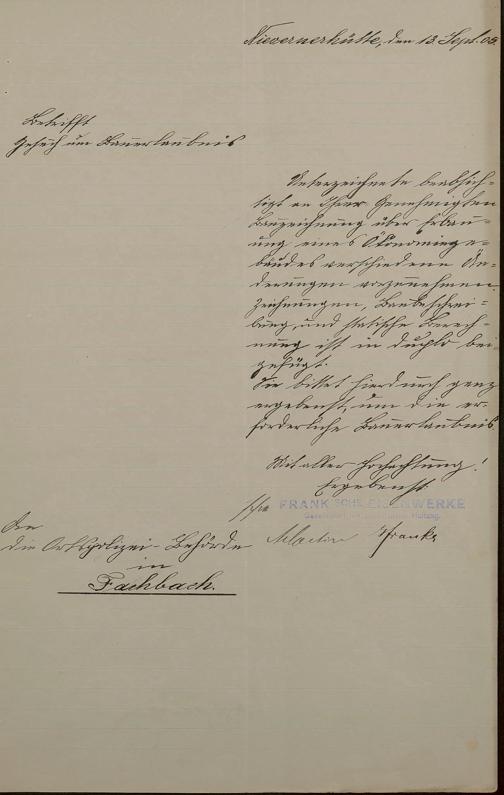 Nievernerhütte, den 13. Sept. 05.
Betrifft
Gesuch um Bauerlaubnis
Unterzeichnete beabsich-
tigt an Ihrer Genehmigten
Bauzeichnung über Erbau-
ung eines Ökonomiege-
bäudes verschiedene Än-
derungen vorzunehmen.
Zeichnungen, Baubeschrei-
bung, und statische Berech-
nung ist in duplo bei
gefügt.
Sie bittet hierdurch ganz
ergebenst, um die er-
forderliche Bauerlaubnis.
Mit aller Hochachtung!
Ergebenst
FRANK'SCHE EISENWERKE
An
die Ortspolizei-Behörde
in
Fachbach.